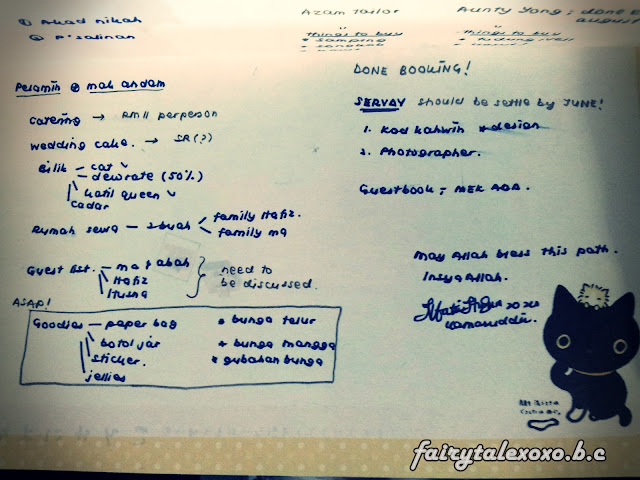 ① Akad nikah
② P'salinan
Azam Tailor
Things to buy
* samping
* songkok
Aunty Yong : done
august
Things to buy
* tudung/veil
Pelamin @ mak andam
Catering → RM11 perperson
Wedding cake. → SR(?)
Bilik - cat ✓
- dewrate (50%)
katil queen ✓
cadar
Rumah sewa - 2 buah
family Hafiz.
family ma
Guest list. - ma & abah
Hafiz
Husna
need to
be discussed.
ASAP!
Goodies - paper bag
botol jar
sticker.
jellies
* bunga telur
* bunga mangga
* gubahan bunga
DONE BOOKING!
SERVAY should be settle by JUNE!
1. Kad kahwin * design
2. Photographer.
Guestbook ; MEK ADA.
May Allah bless this path.
InsyaAllah.
xoxo
kamaruddin
fairytalexoxo.b.c